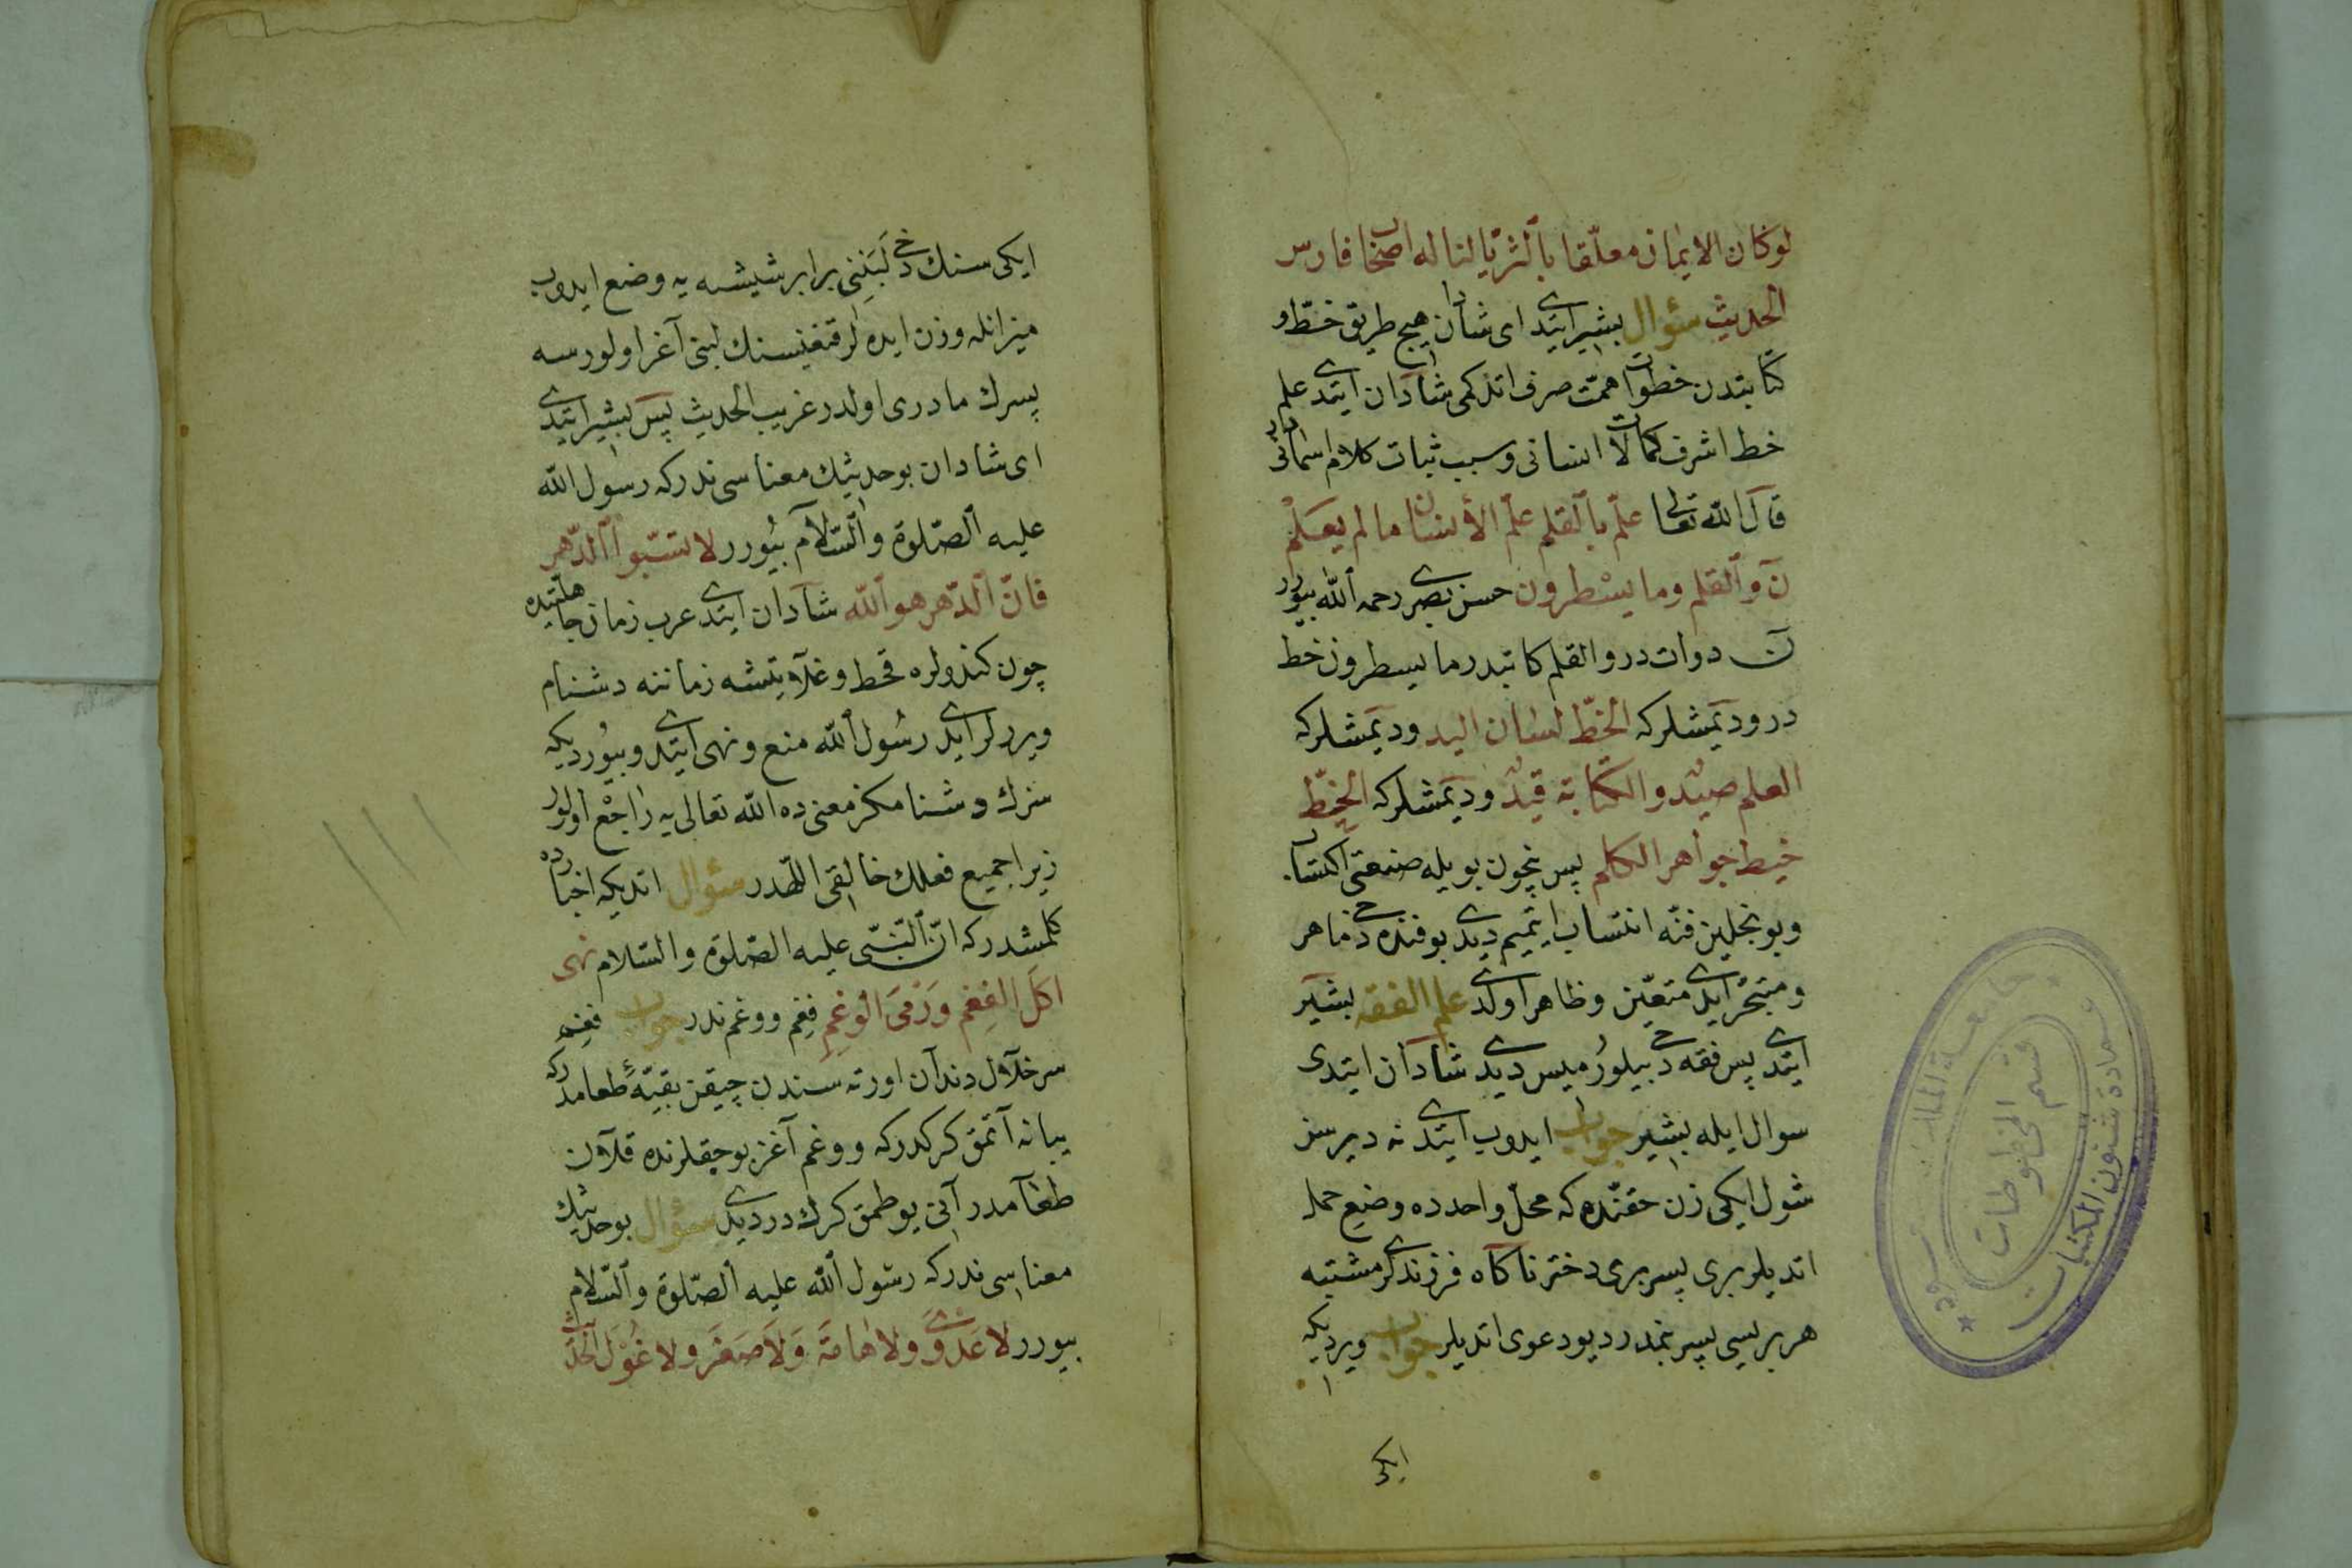 لو كان الايمان معلّقا بالثريّا لنا له اصحاب فارس
الحديث سؤال بشير ايتدى اى شادان هيچ طريق خطّ و
كتابتدن خطوات همّت صرف اتدكمى شادان ايتدى علم
خط اشرف كمالات انسانى و سبب ثبات كلام اسمانيدر
قال الله تعالى علّم بالقلم علّم الأنسان ما لم يعلم
نٓ والقلم وما يسْطرون حسن بصرى رحمه الله بيورر
نٓ دوات در والقلم كاتبدر ما يسطرون خط
در و ديمشلركه الخطّ لسان اليد و ديمشلركه
العلم صيد والكتابة قيد و ديمشلركه الخطّ
خيط جواهر الكلم پس نچون بويله صنعتى اكتساب
و بونجلين فنّه انتساب ايتميم ديدى بو فنده دخى ماهر
و متبحّر ايدى متعيّن و ظاهر اولدى علم الفقه بشير
ايتدى پس فقه دخى بيلورميسن ديدى شادان ايتدى
سوال ايله بشير جواب ايدوب ايتدى نه ديرسن
شول ايكى زن حقنده كه محلّ واحدده وضع حمل
اتديلر برى پسر برى دختر ناكاه فرزندلرى مشتبه
هر بريسى پسر بنمدر ديو دعوى اتديلر جواب ويرديكه
ايكى
ايكى سنك دخى لبَنِنى برابر شيشه يه وضع ايدوب
ميزانله وزن ايده لر قنغيسنك لبنى آغر اولورسه
پسرك مادرى اولدر غريب الحديث پس بشير ايتدى
اى شادان بو حديثك معناسى ندركه رسول الله
عليه الصّلوة والسّلام بيُورر لا تسبّوا الدّهر
فانّ الدّهر هو الله شادان ايتدى عرب زمان جاهليتده
چون كندولره قحط و غلا يتشه زماننه دشنام
ويررلر ايدى رسُول الله منع و نهى ايتدى و بيُورديكه
سزك دشنامكز معنى ده الله تعالى يه راجع اولور
زيرا جميع فعلك خالقى اللهدر سؤال اتديكه اخبارده
كلمشدركه انّ النّبىّ عليه الصّلوة والسّلام نهى
اكل الفغم و رَمىَ الوغمِ فغم و وغم ندر جواب فغم
سر خلال دندان اورته سندن چيقن بقيّهٔ طعامدركه
يبانه آتمق كركدركه و وغم آغز بوجقلرنده قلان
طعامدر آنى يوطمق كرك در ديدى سؤال بو حديثك
معناسى ندركه رسول الله عليه الصّلوة والسّلام
بيورر لا عَدوَى ولا هامَةَ وَلَا صَفَر ولا غُول الحديث
جامعة الملك سعود
عمادة شئون المكتبات
قسم المخطوطات